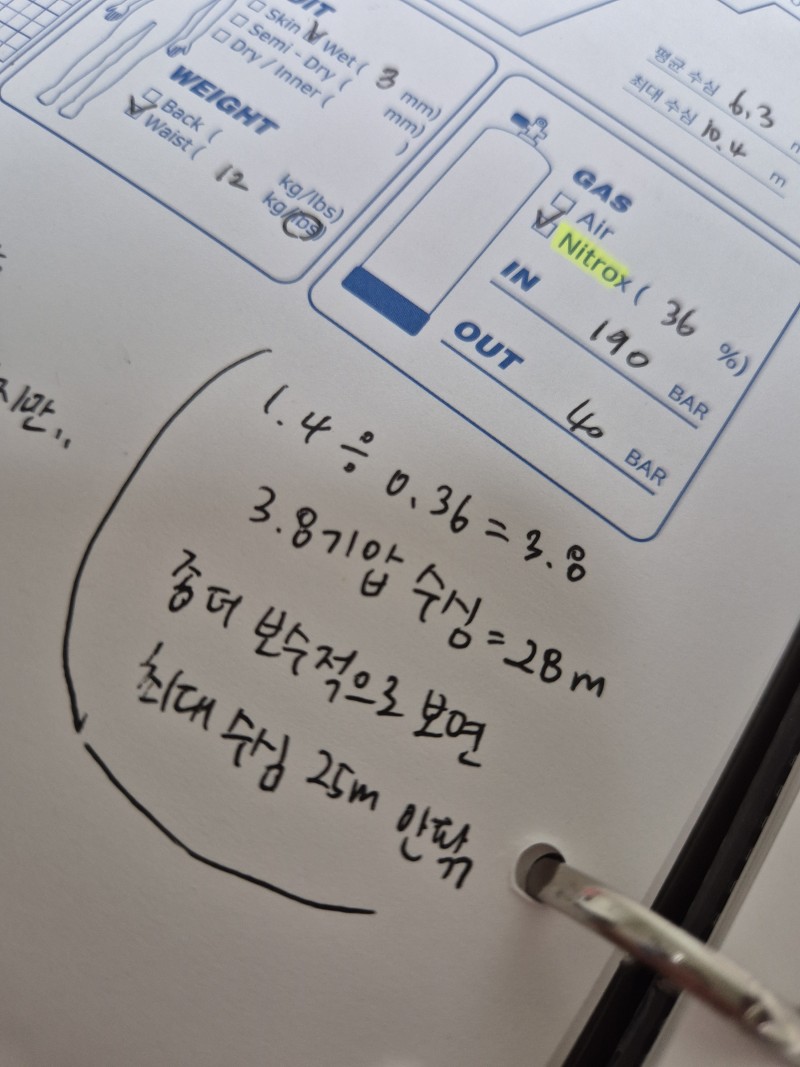 ☐ Skin ☑ Wet ( 3 mm)
☐ Semi - Dry ( mm)
☐ Dry / Inner ( )
WEIGHT
☐ Back ( kg/lbs)
☑ Waist ( 12 kg/lbs)
평균 수심 6.3 m
최대 수심 10.4 m
GAS
☐ Air
☑ Nitrox ( 36 %)
IN 190 BAR
OUT 40 BAR
1.4 ÷ 0.36 = 3.8
3.8기압 수심 = 28m
좀더 보수적으로 보면
최대 수심 25m 안팎